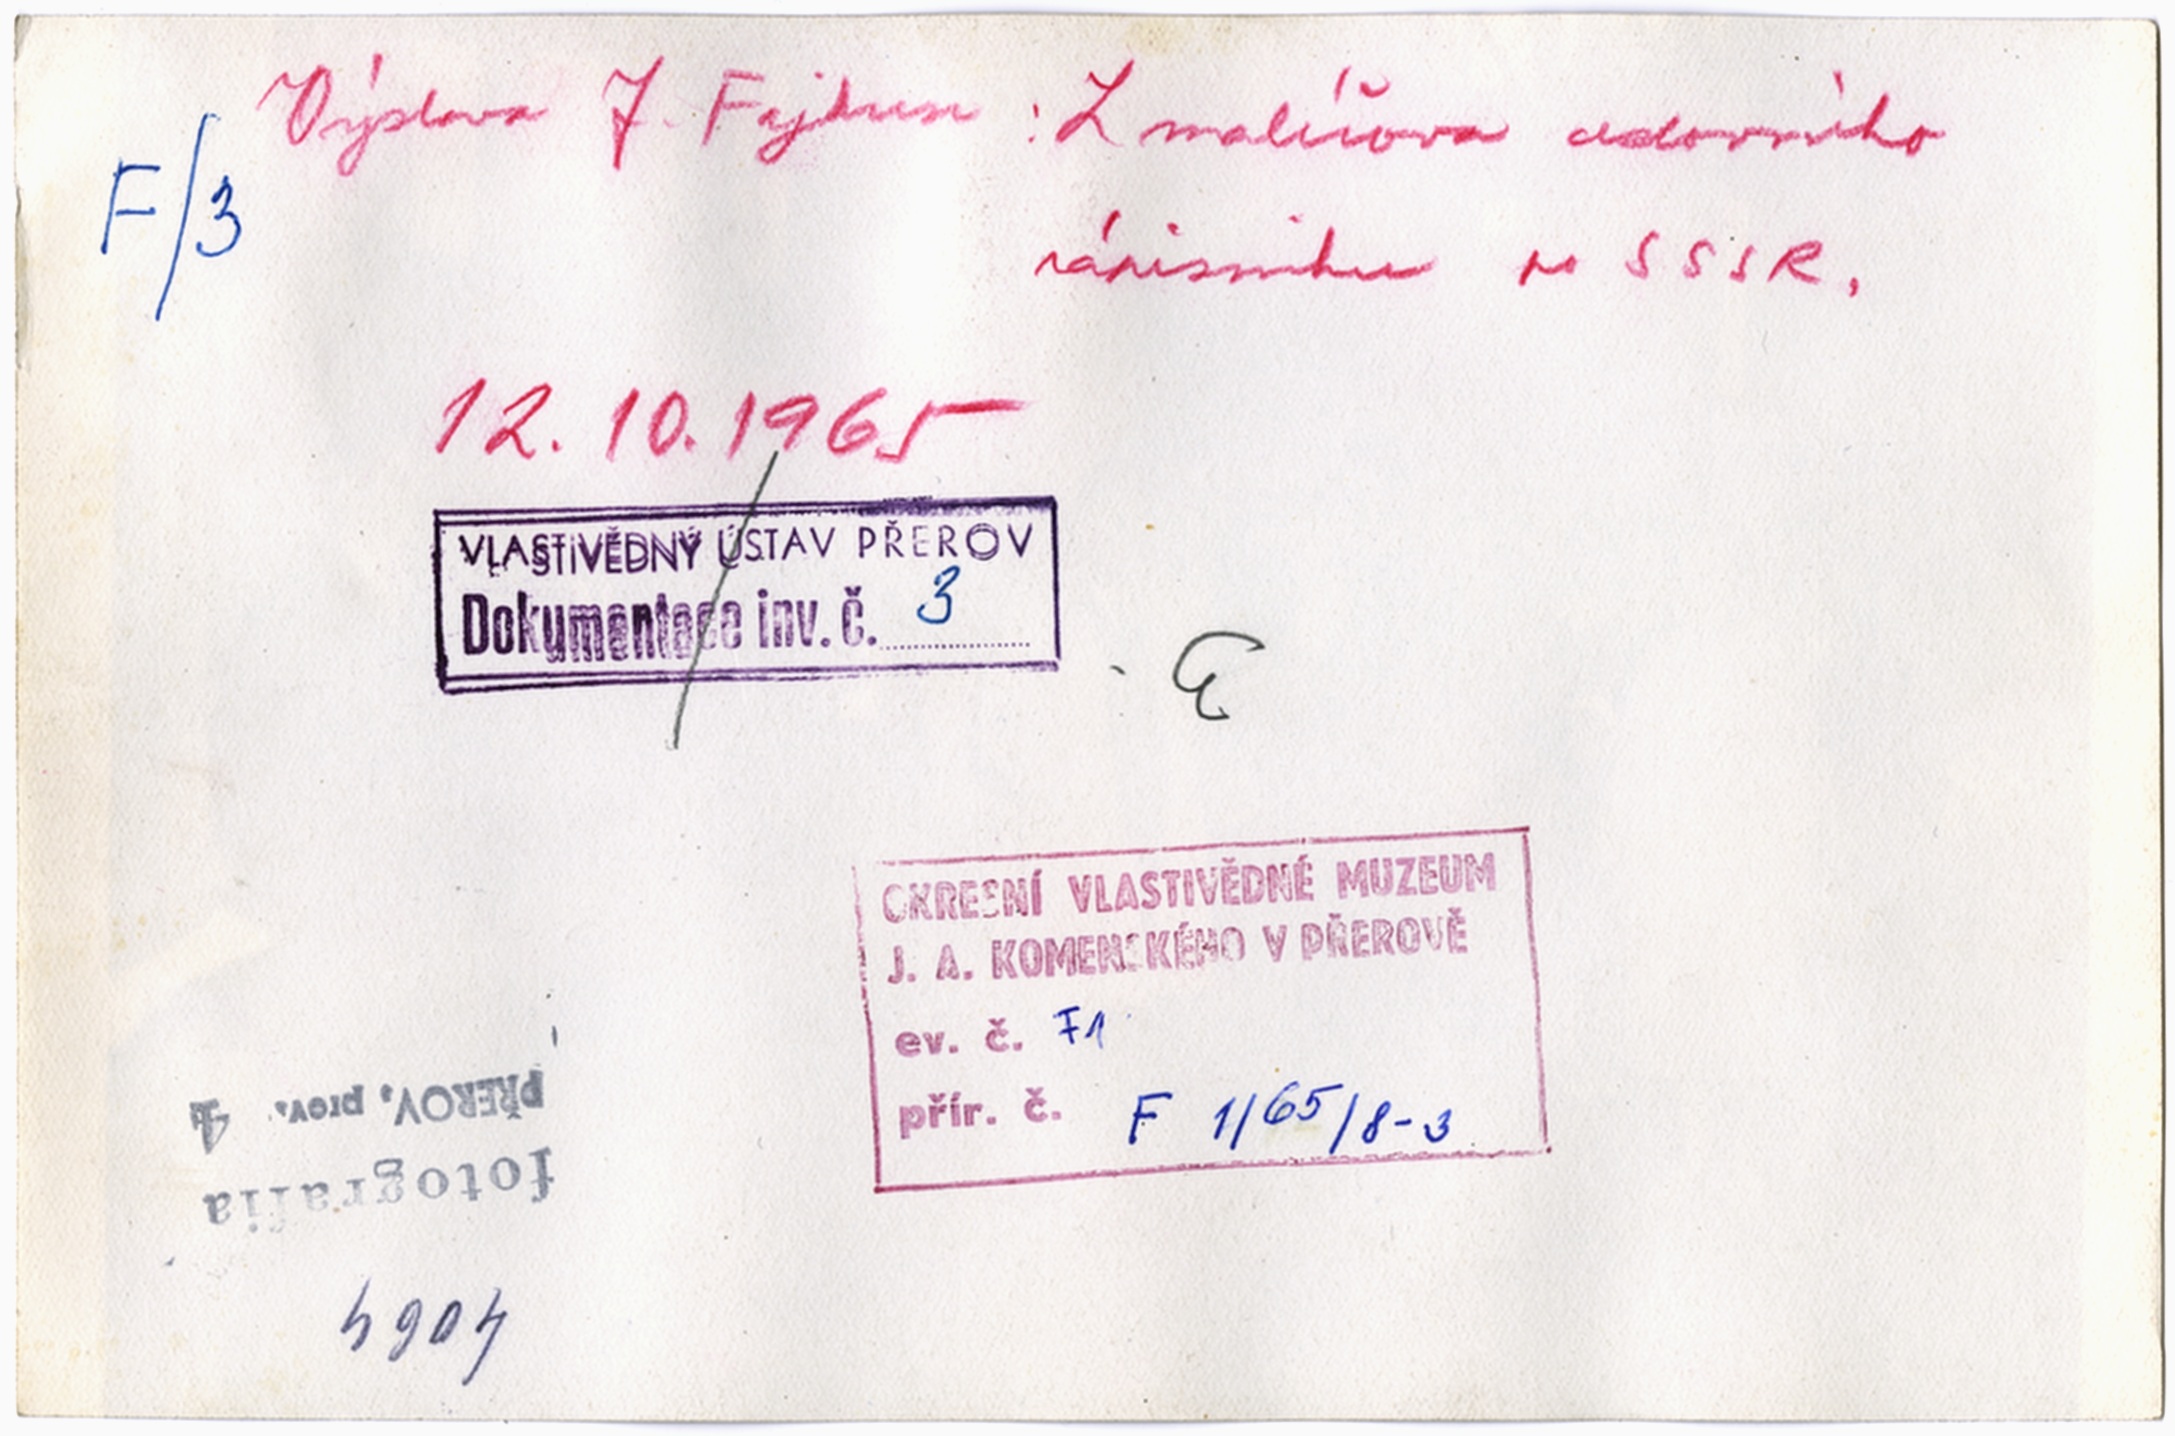 Výstava J. Fajkuse : Z malířova cestovního
zápisníku po SSSR.
F/3
12. 10. 1965
VLASTIVĚDNÝ ÚSTAV PŘEROV
Dokumentace inv. č. 3
OKRESNÍ VLASTIVĚDNÉ MUZEUM
J. A. KOMENSKÉHO V PŘEROVĚ
ev. č. F1
přír. č. F 1/65/8-3
4064
fotografia
PŘEROV, prov. 4